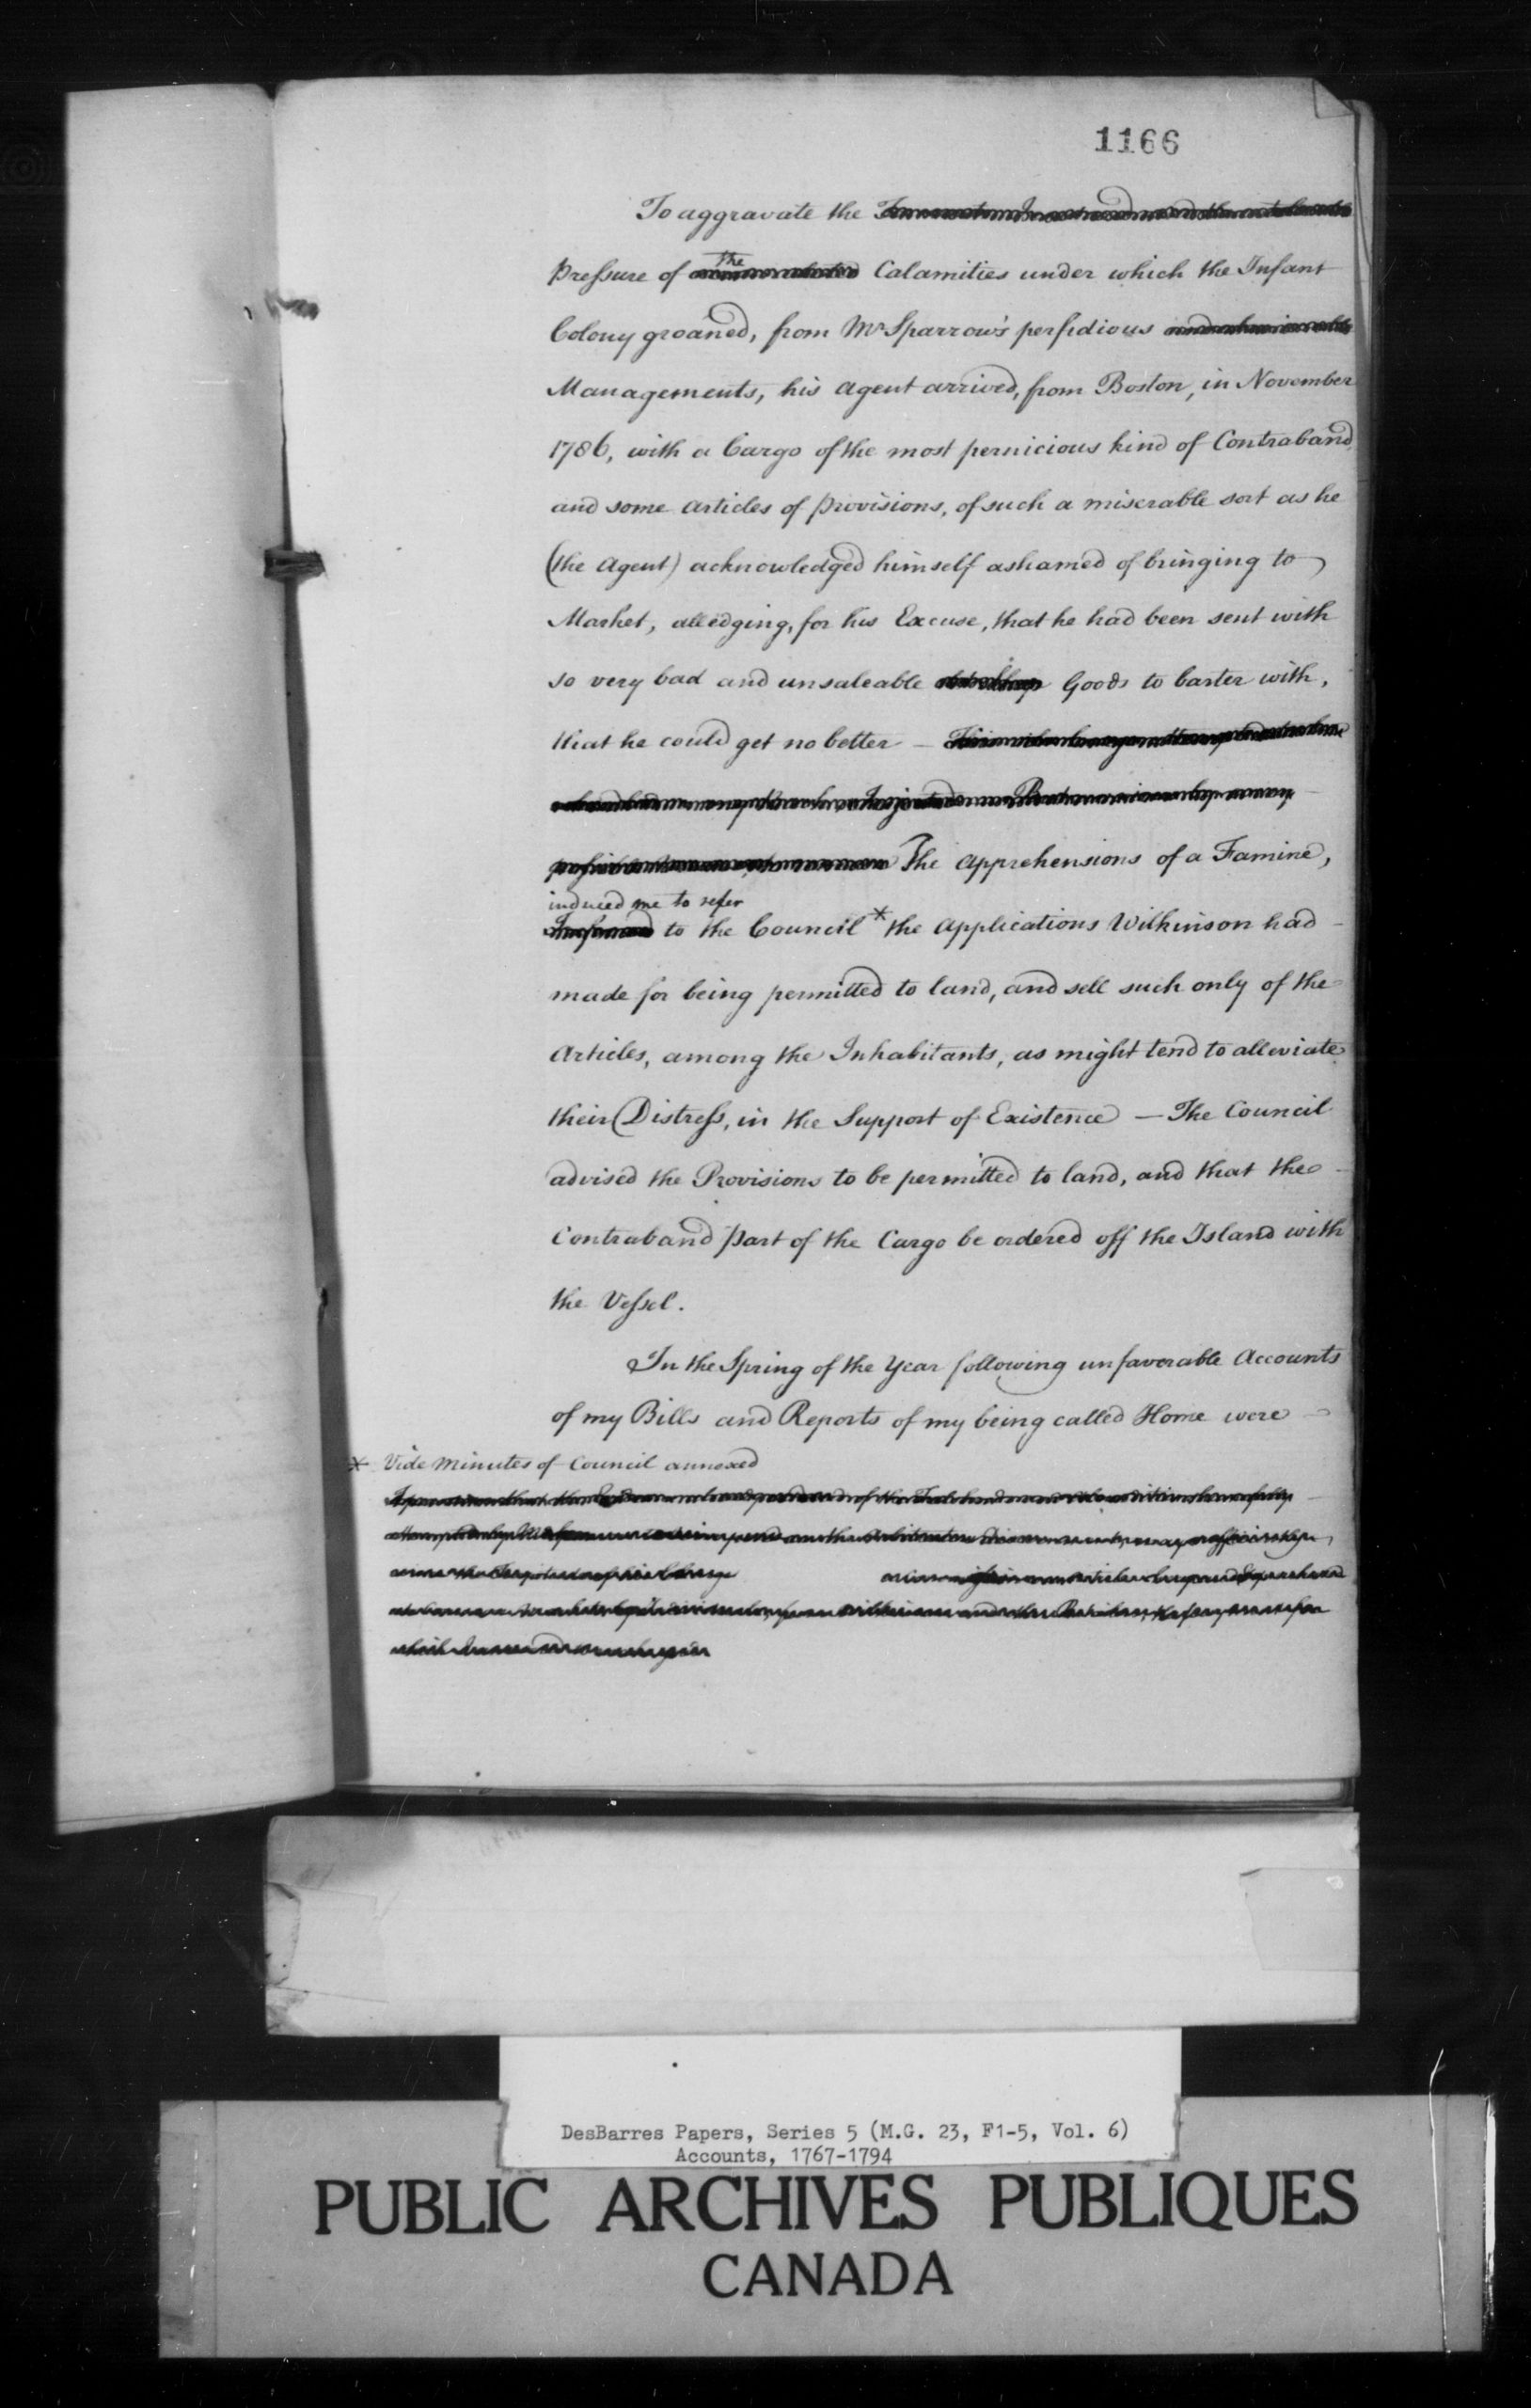 1166
To aggravate the
Pressure of the Calamities under which the Infant
Colony groaned, from Mr Sparrow's perfidious
Managements, his Agent arrived, from Boston, in November
1786, with a Cargo of the most pernicious kind of Contraband,
and some Articles of Provisions, of such a miserable sort as he
(the Agent) acknowledged himself ashamed of bringing to
Market, alledging, for his Excuse, that he had been sent with
so very bad and unsaleable Goods to barter with,
that he could get no better —
The Apprehensions of a Famine,
induced me to refer
to the Council * the Applications Wilkinson had
made for being permitted to land, and sell such only of the
Articles, among the Inhabitants, as might tend to alleviate
their Distress, in the Support of Existence — The Council
advised the Provisions to be permitted to land, and that the
Contraband part of the Cargo be ordered off the Island with
the Vessel.
In the Spring of the Year following unfavorable Accounts
of my Bills and Reports of my being called Home were
* Vide Minutes of Council annexed
DesBarres Papers, Series 5 (M.G. 23, F1-5, Vol. 6)
Accounts, 1767-1794
PUBLIC ARCHIVES PUBLIQUES
CANADA